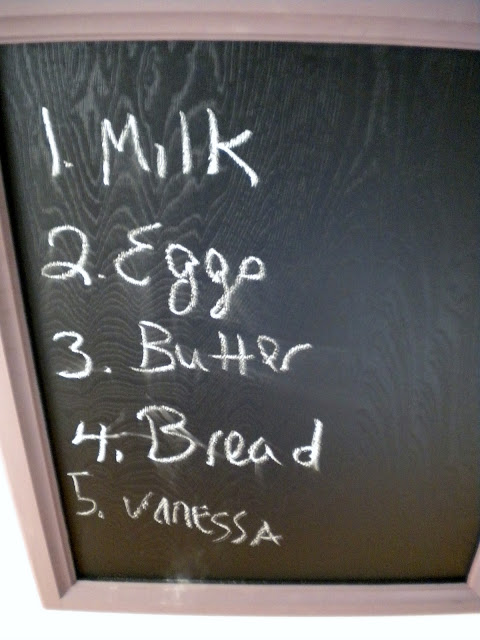 1. Milk
2. Eggs
3. Butter
4. Bread
5. VANESSA